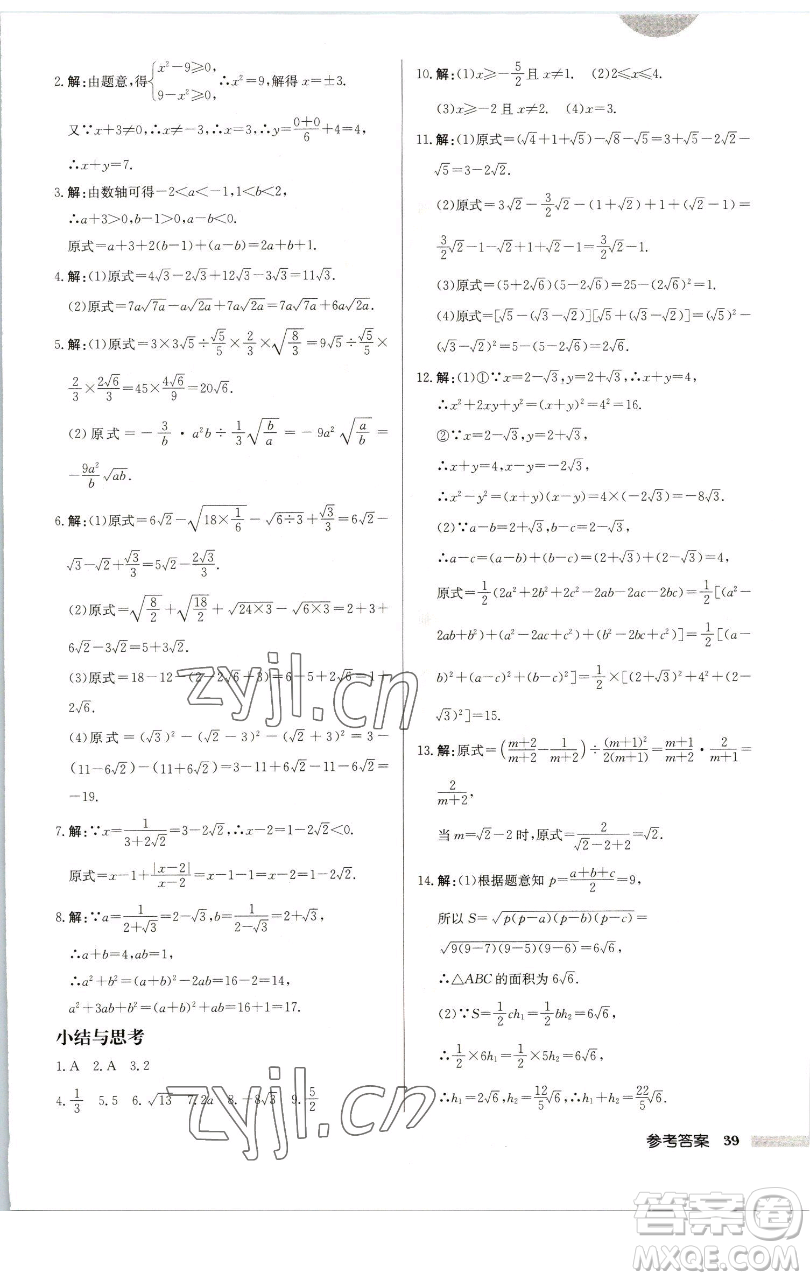 2. 解:由题意,得{x²-9≥0, 9-x²≥0, ∴x²=9,解得 x=±3.
又∵x+3≠0,∴x≠-3,∴x=3,∴y=(0+0)/6+4=4,
∴x+y=7.
3. 解:由数轴可得-2<a<-1,1<b<2,
∴a+3>0,b-1>0,a-b<0.
原式=a+3+2(b-1)+(a-b)=2a+b+1.
4. 解:(1)原式=4√3-2√3+12√3-3√3=11√3.
(2)原式=7a√7a-a√2a+7a√2a=7a√7a+6a√2a.
5. 解:(1)原式=3×3√5÷√5/5×2/3×√(8/3)=9√5÷√5/5×
2/3×2√6/3=45×4√6/9=20√6.
(2)原式=-3/b·a²b÷1/3√(b/a)=-9a²√(a/b)=
-9a²/b√ab.
6. 解:(1)原式=6√2-√(18×1/6)-√(6÷3)+√3/3=6√2-
√3-√2+√3/3=5√2-2√3/3.
(2)原式=√(8/2)+√(18/2)+√(24×3)-√(6×3)=2+3+
6√2-3√2=5+3√2.
(3)原式=18-12-(2-2√6+3)=6-5+2√6=1+
2√6.
(4)原式=(√3)²-(√2-3)²-(√2+3)²=3-
(11-6√2)-(11+6√2)=3-11+6√2-11-6√2=
-19.
7. 解:∵x=1/(3+2√2)=3-2√2,∴x-2=1-2√2<0.
原式=x-1+|x-2|/(x-2)=x-1-1=x-2=1-2√2.
8. 解:∵a=1/(2+√3)=2-√3,b=1/(2-√3)=2+√3,
∴a+b=4,ab=1,
∴a²+b²=(a+b)²-2ab=16-2=14,
a²+3ab+b²=(a+b)²+ab=16+1=17.
小结与思考
1. A 2. A 3. 2
4. 1/3 5. 5 6. √13 7. 2a 8. -√3 9. 5/2
10. 解:(1)x≥-5/2且x≠1. (2)2≤x≤4.
(3)x≥-2且x≠2. (4)x=3.
11. 解:(1)原式=(√4+1+√5)-√8-√5=3+√5-2√2-
√5=3-2√2.
(2)原式=3√2-3/2√2-(1+√2)+1+(√2-1)=
3/2√2-1-√2+1+√2-1=3/2√2-1.
(3)原式=(5+2√6)(5-2√6)=25-(2√6)²=1.
(4)原式=[√5-(√3-√2)][√5+(√3-√2)]=5-(√3
-√2)²=5-(5-2√6)=2√6.
12. 解:(1)①∵x=2-√3,y=2+√3,∴x+y=4,
∴x²+2xy+y²=(x+y)²=4²=16.
②∵x=2-√3,y=2+√3,
∴x+y=4,x-y=-2√3,
∴x²-y²=(x+y)(x-y)=4×(-2√3)=-8√3.
(2)∵a-b=2+√3,b-c=2-√3,
∴a-c=(a-b)+(b-c)=(2+√3)+(2-√3)=4,
原式=1/2(2a²+2b²+2c²-2ab-2ac-2bc)=1/2[(a²-
2ab+b²)+(a²-2ac+c²)+(b²-2bc+c²)]=1/2[(a-
b)²+(a-c)²+(b-c)²]=1/2×[(2+√3)²+4²+(2-
√3)²]=15.
13. 解:原式=((m+2)/(m+2)-1/(m+2))÷(m+1)²/2(m+1)=(m+1)/(m+2)·2/(m+1)=
2/(m+2),
当m=√2-2时,原式=2/(√2-2+2)=√2.
14. 解:(1)根据题意知 p=(a+b+c)/2=9,
所以 S=√(p(p-a)(p-b)(p-c))=
√(9(9-7)(9-5)(9-6))=6√6,
∴△ABC的面积为6√6.
(2)∵S=1/2ch₁=1/2bh₂=6√6,
∴1/2×6h₁=1/2×5h₂=6√6,
∴h₁=2√6,h₂=12/5√6,∴h₁+h₂=22/5√6.
参考答案 39
zyjl.cn
zyjl.cn
答案圈
MXQE.COM